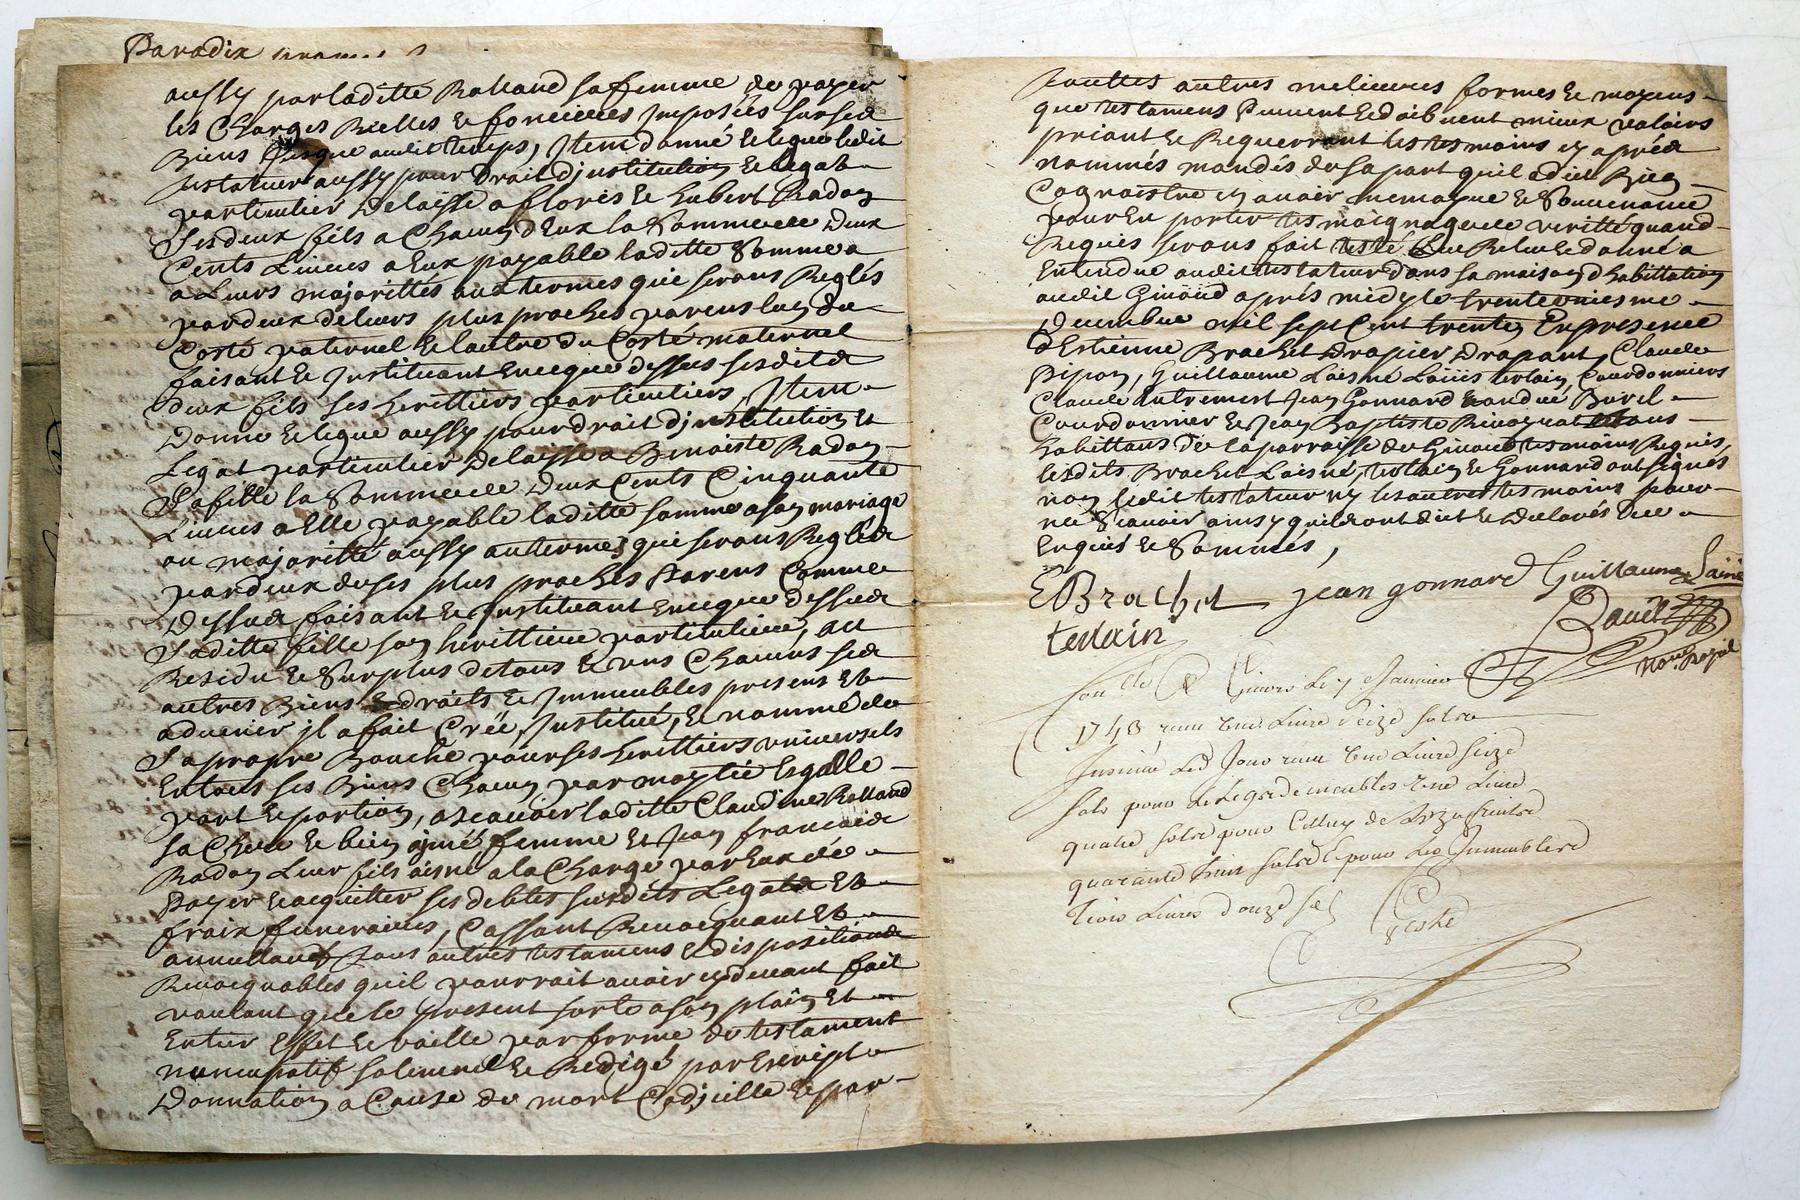 Paradix
aussy par laditte Rolland sa femme de payer
les Charges Rielles & foncieres Imposées sur sed
Biens jusque audit temps, Item donné & legue ledit
testateur aussy pour droit d'jnstitution & legat
particulier delaisse a floris & hubert Radon
ses deux fils a Chacun d'eux la Somme de deux
Cents Livres a Eux payable laditte Somme a
a Leurs majorittés aux termes qui serons Reglés
par deux de leurs plus proches parens lun du
Costé paternel & lautre du Costé maternel
faisant & Jnstituant Enveque dessus sesditd
deux fils ses herittiers particuliers, Item
donne & legue aussy pour droit d'jnstitution Et
Legat particulier delaisse a Benoiste Radon
Sa fille la Somme de deux Cents Cinquante
Livres a Elle payable laditte somme a son mariage
ou majoritté aussy au termes qui serons Regléd
par deux de ses plus proches Parens Comme
dessud faisant & Jnstituant Enveque dessud
Saditte fille son herittiere particuliere, au
Residu & Surplus de tous & uns Chacuns sed
autres Biens & droits & Jmmeubles presens Et
advenir il a fait Crée, Jnstitué, & nommé de
Sa propre Bouche pour ses herittiers universels
En tous ses Biens Chacun par moytié Esgalle
part & portion, a Scavoir laditte Claudine Rolland
sa Chere & bien ajmé femme Et Jean francoid
Radon Leur fils aisné a la Charge par Eux de
Payer & acquitter ses debtes susdits Legatd Et
fraix funeraires, Cassant Revocquant Et
annullant tous autres testamens & dispositiond
Revocquables qu'il pourrait avoir cy devant fait
voulant que le present sorte a son plain Et
Entier Effet & vaille par forme de testament
nuncupatif solemnel & Redigé par Escript
Donnation a Cause de mort Codjcille & par
touttes autres melieures formes & moyens
que testamens Peuvent & doibvent mieux valoirs
priant & Requerrant les tesmoins cy apréd
nommés mandés de sa part qu'il a dit Bien
Cognaistre en avoir memoyre & Souvenance
pour En porter tesmoignage de verité quand
Requis serons fait testé Leu Releu & donné a
Entendre audit testateur dans sa maison d'habittation
audit Givord aprés midy le trentunies me
Decembre mil sept Cent trente, En presence
d'Estienne Brachet drapier drapant, Claude
Pipon, Guillaume Laisné Loüis terlain Courdonniers
Claude autrement Jean Gonnard Burel
Courdonnier & Jean Baptiste tous
habittans de la parroisse de Givord tesmoins Requis,
lesdits Brachet Laisné, terlain & Gonnard ont signés
non ledit testateur ny les autres tes moins pour
ne Scavoir ainsy qu'ils ont dit & declarés de ce
Enquis & Sommés,
EBrachet jean gonnard Guillaume Lainé
terlain
David
Not. Royal
Con.lle a Givors Le 7 e Janvier
1748 recu une Livre Seize sols
Jnsinué Led Jour recu une Livre Seize
sols pour Le Legs de meubles une Livre
quatre sols pour Celluy de
quarante huit sols & pour Les Jmmeubles
trois Livres douze sols